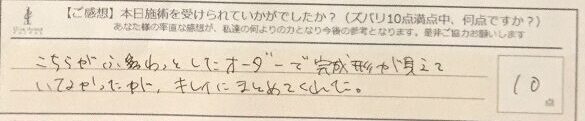 【ご感想】本日施術を受けられていかがでしたか？（ズバリ10点満点中、何点ですか？）
あなた様の率直な感想が、私達の何よりの力となり今後の参考となります。是非ご協力お願いします
こちらがふわっとしたオーダーで完成形が見えて
いなかったが、キレイにまとめてくれた。
10
点